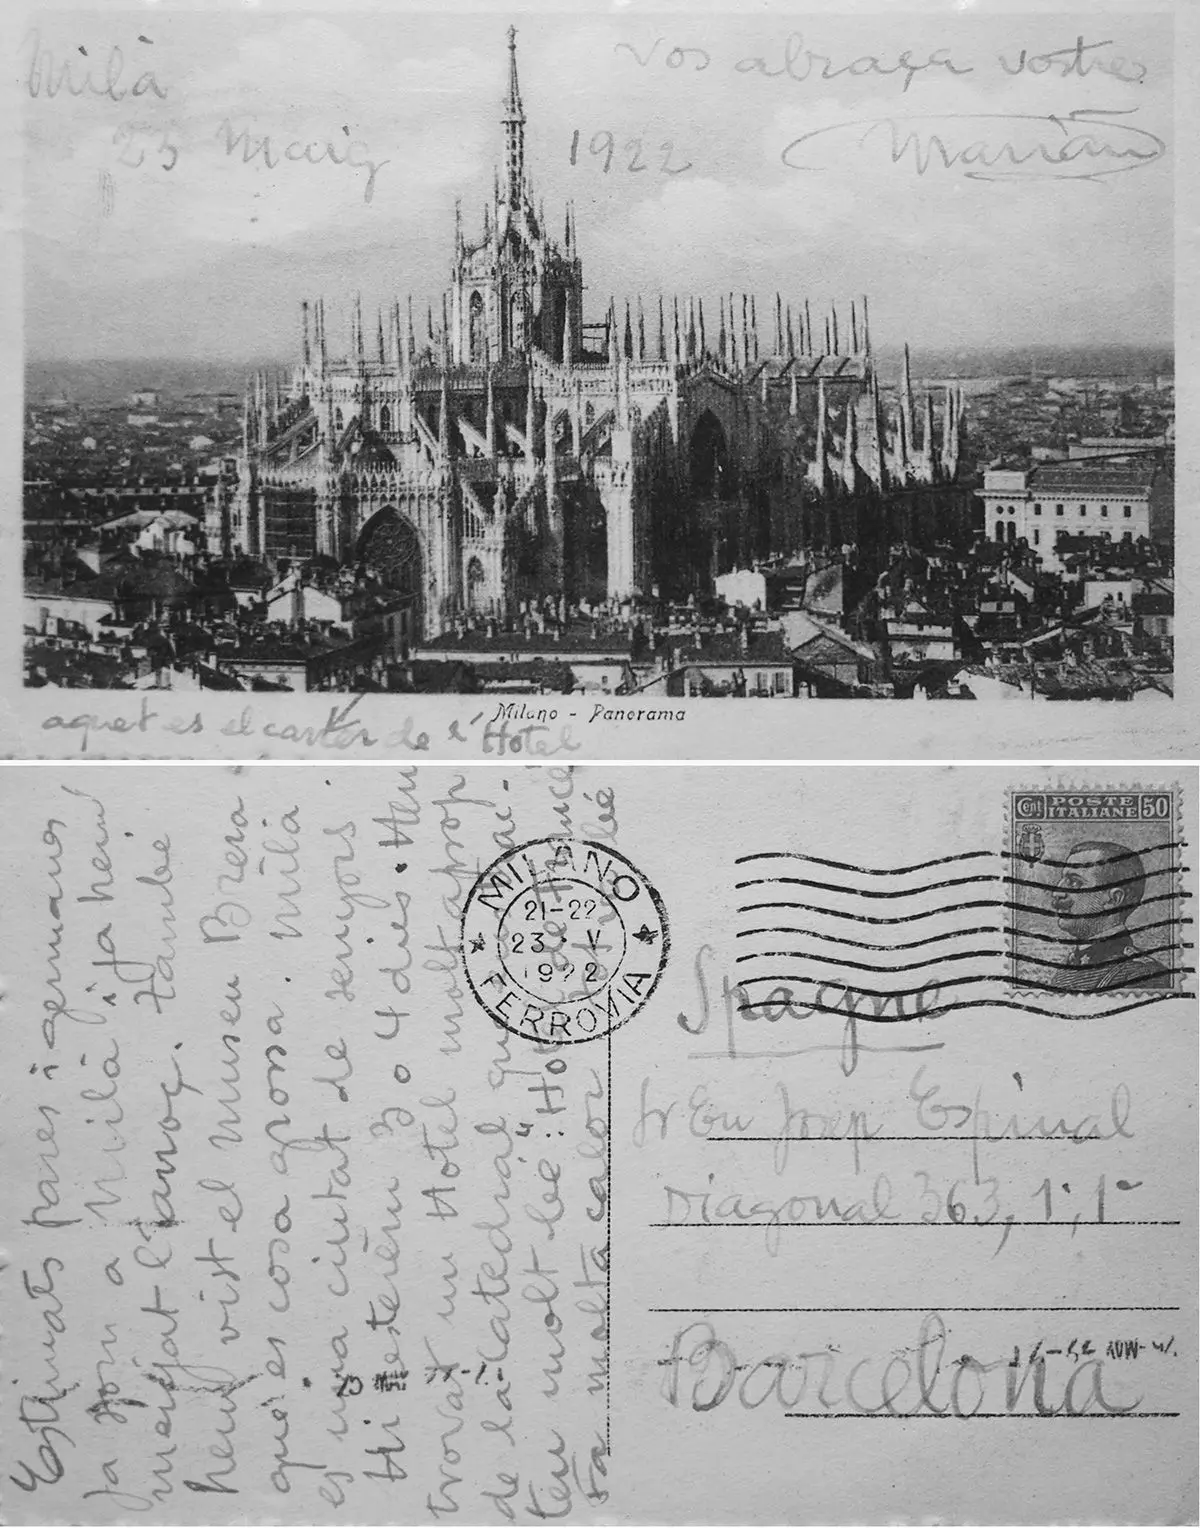 Milà
23 Maig 1922
vos abraça vostre
Marián
Milano - Panorama
aquet es el carrer de l'Hotel
Estimats pares i germanes
Ja som a Milà i ja hem
menjat l'arroç. També
hem vist el museu Brera
que es cosa grossa. Milà
es una ciutat de senyors.
Hi esterem 3 o 4 dies. Hem
trovat un Hotel molt aprop
de la Catedral que
ten molt bé: "Hotel
fa molta calor també
MILANO
21-22
23 · V
1922
FERROVIA
Cent POSTE ITALIANE 50
Spagne
Sr En Josep Espinal
Diagonal 363, 1º, 1ª
Barcelona